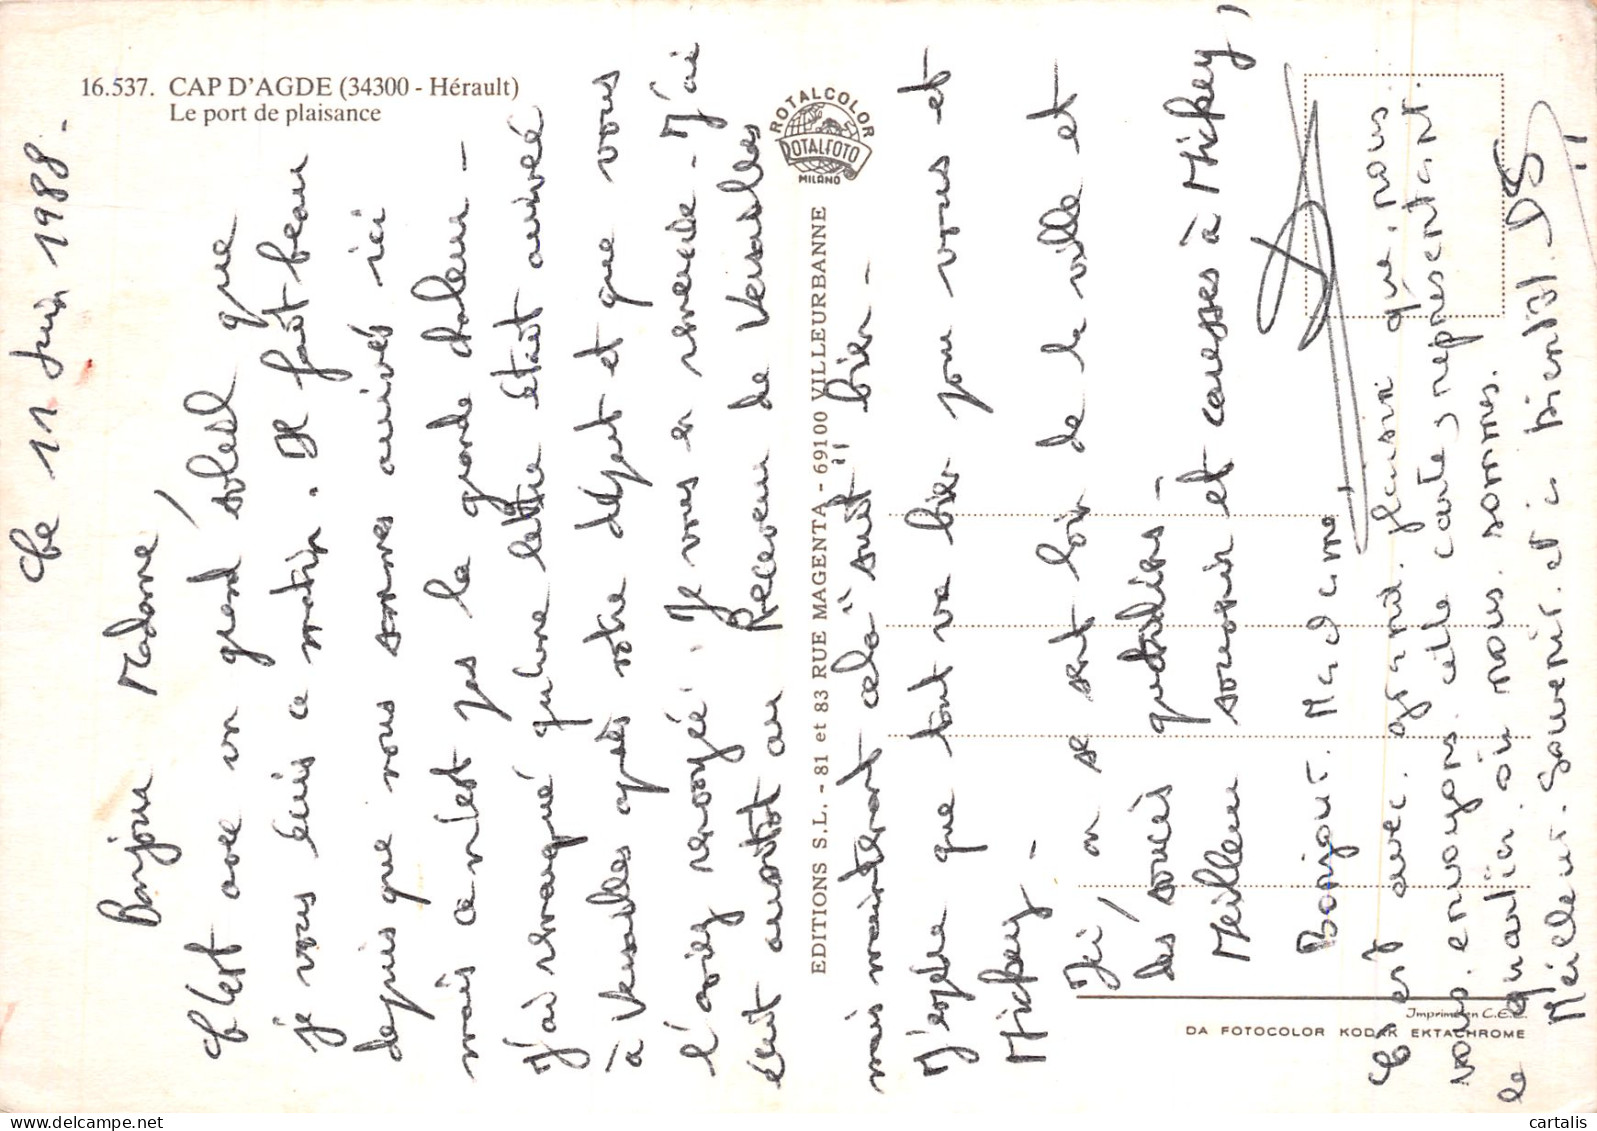 16.537. CAP D'AGDE (34300 - Hérault)
Le port de plaisance
ROTALCOLOR
ROTALFOTO
MILANO
EDITIONS S.L. - 81 et 83 RUE MAGENTA - 69100 VILLEURBANNE
Imprimé en C.E.E.
DA FOTOCOLOR KODAK EKTACHROME
Le 11 Juin 1988 -
Bonjour Madame,
C'est avec un grand soleil que
je vous écris ce matin. Il fait beau
depuis que nous sommes arrivés ici
mais ce n'est pas la grande chaleur -
J'ai remarqué qu'une lettre était arrivée
à Versailles après votre départ et que vous
l'aviez renvoyée. Je vous en remercie - J'ai
écrit aussitôt au Receveur de Versailles
mais maintenant cela "suit" bien -
J'espère que tout va bien pour vous et
Mickey -
Ici, on se sent loin de la ville et
des soucis quotidiens -
Meilleur souvenir et caresses à Mickey,
Bonjour. Madame
C'est avec. grand. plaisir que. nous
vous. envoyons. cette cartes représentant.
le quartier. où nous. sommes.
Meilleur. Souvenir. et à bientôt. DS
cartalis